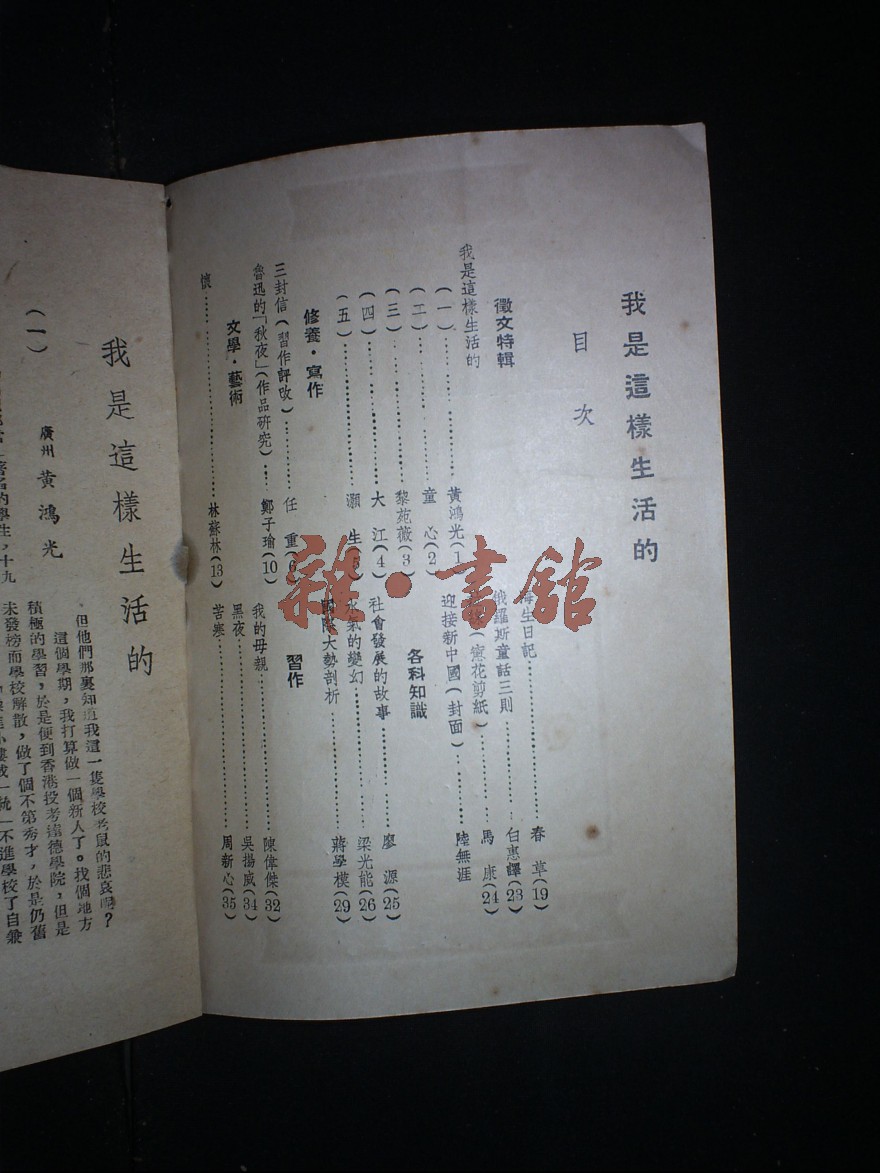 我是這樣生活的
目次
徵文特輯
我是這樣生活的
(一)……黃鴻光(1)
(二)……童 心(2)
(三)……黎苑薇(3)
(四)……大 江(4)
(五)……灝 生(5)
修養·寫作
三封信(習作評改)……任 重(6)
魯迅的「秋夜」(作品研究)……鄭子瑜(10)
文學·藝術
懷……林蘇林(13)
生日記……春 草(19)
俄羅斯童話三則……白惠譯(23)
(窗花剪紙)……馬 康(24)
迎接新中國(封面)……陸無涯
各科知識
社會發展的故事……廖 源(25)
水氣的變幻……梁光能(26)
國際大勢剖析……蔣學模(29)
習作
我的母親……陳偉傑(32)
黑夜……吳揚威(34)
苦寒……周新心(35)
雜·書館
我是這樣生活的
(一)
廣州 黃鴻光
的學生,十九
但他們那裏知道我這一隻學校老鼠的悲哀呢?
這個學期,我打算做一個新人了。找個地方
積極的學習,於是便到香港投考達德學院,但是
未發榜而學校解散,做了個不第秀才,於是仍舊
不進學校了自兼